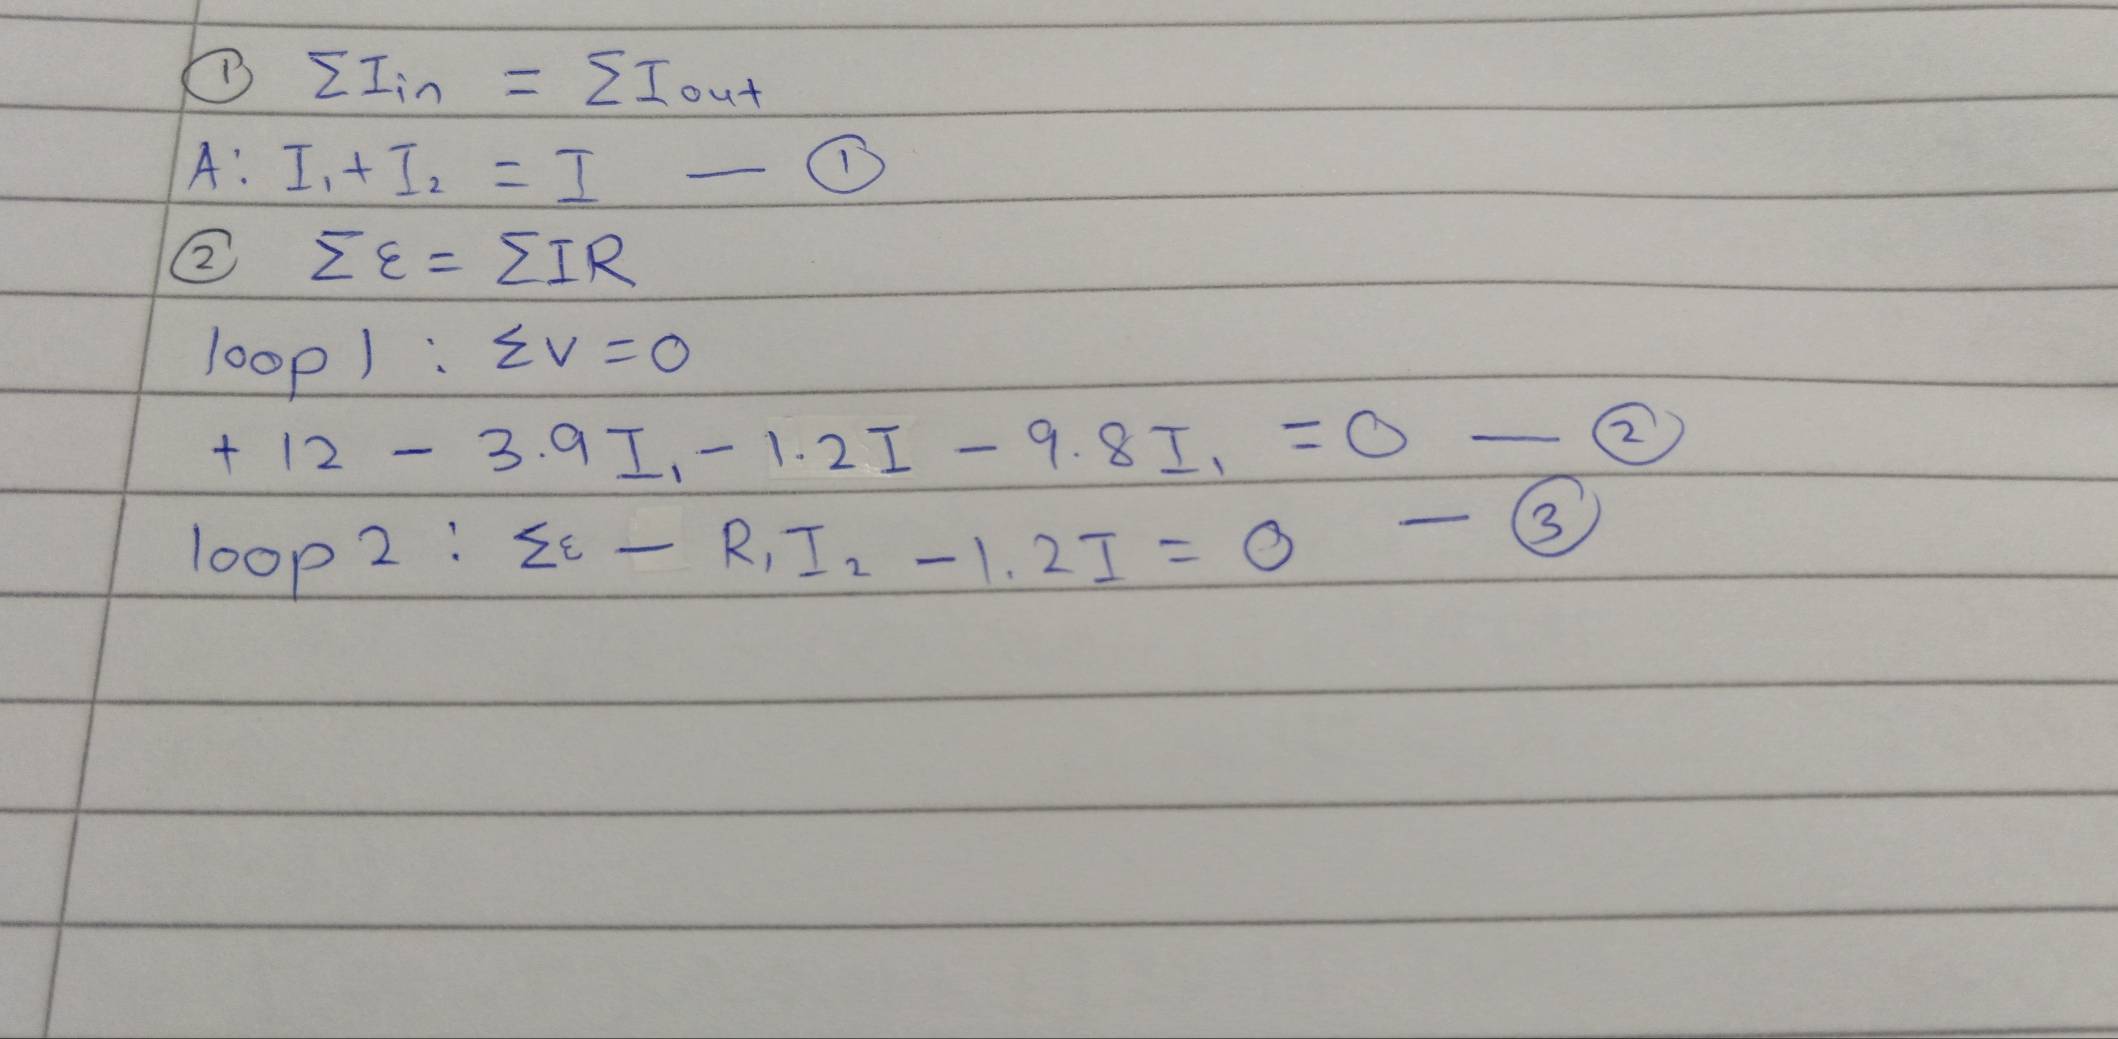 ① ΣIin = ΣIout
A: I₁+I₂ = I — ①
② Σε = ΣIR
loop 1 : ΣV=0
+ 12 - 3.9I₁ - 1.2I - 9.8I₁ = 0 — ②
loop 2 : Σε - R₁I₂ - 1.2I = 0 — ③